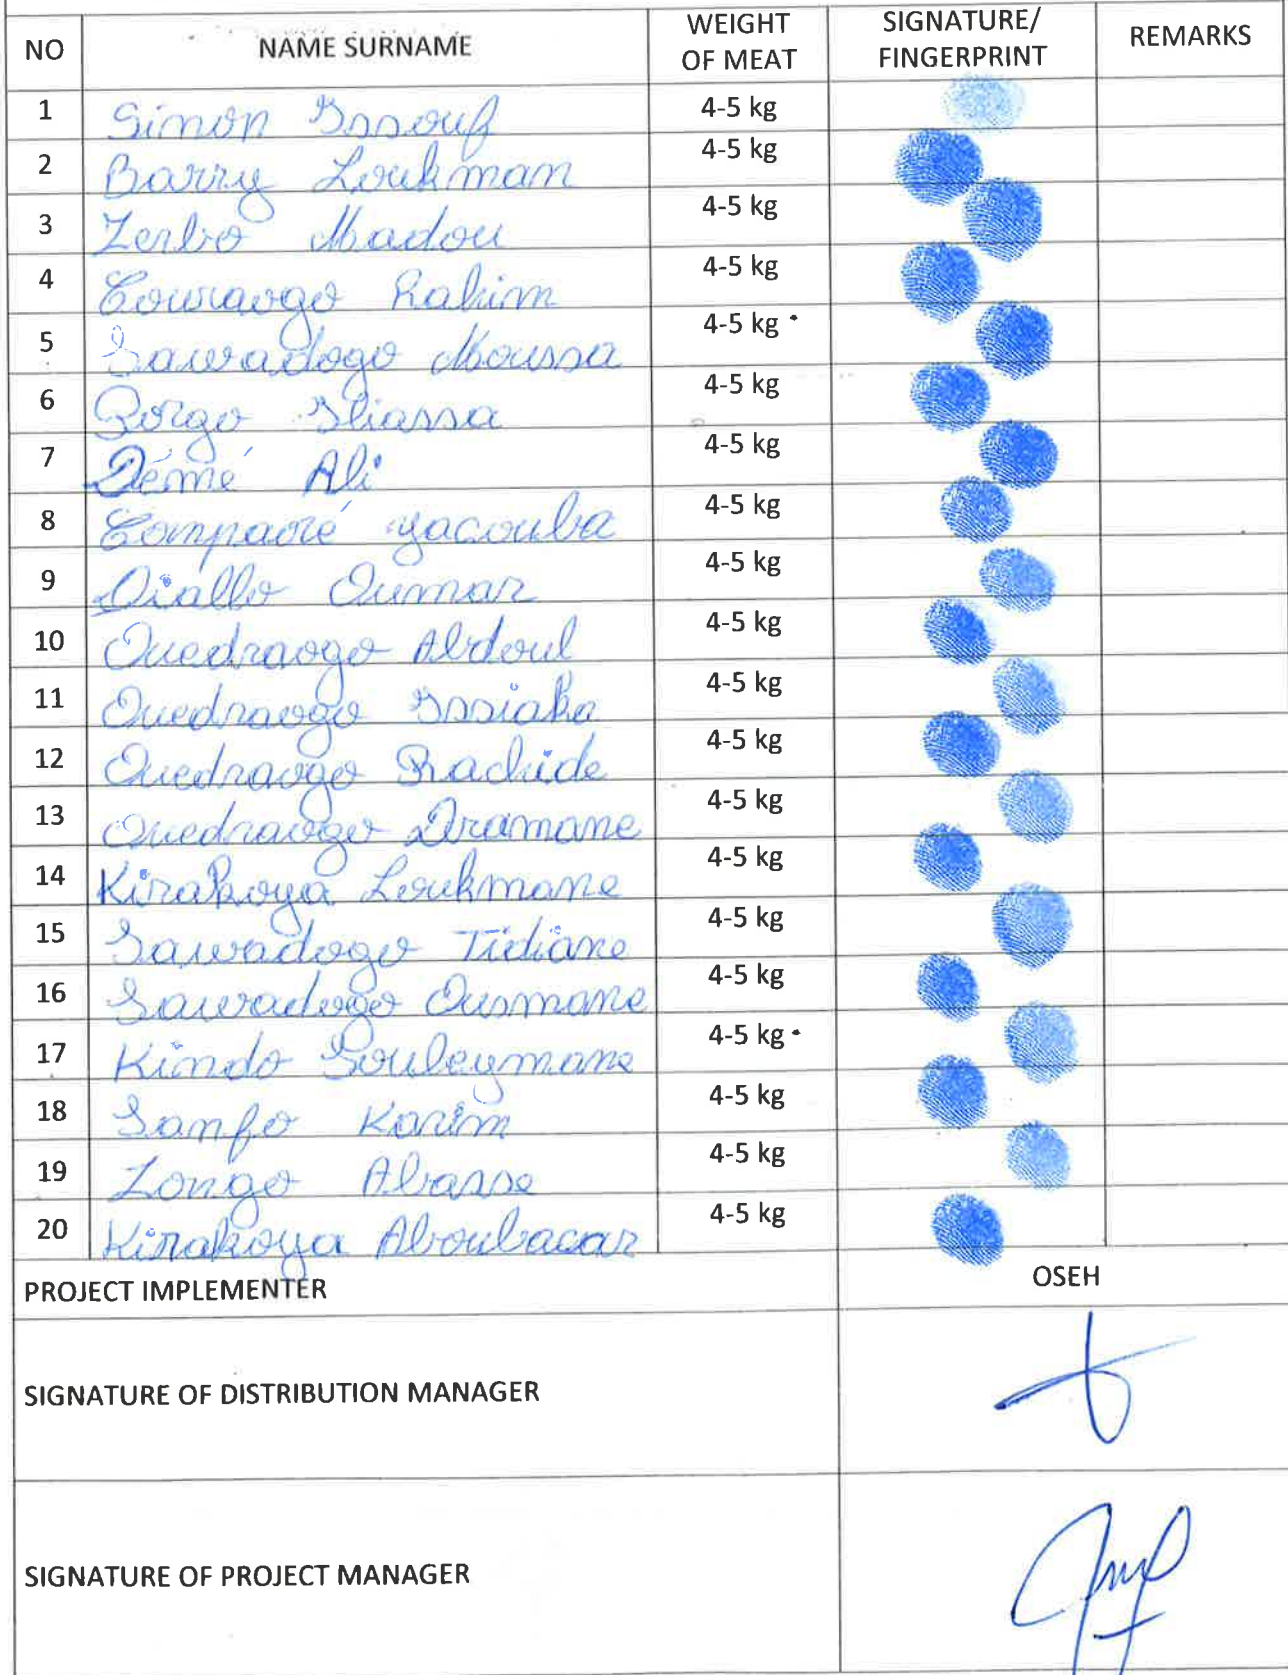 NO NAME SURNAME WEIGHT OF MEAT SIGNATURE/ FINGERPRINT REMARKS
1 Simon Issouf 4-5 kg
2 Barry Loukman 4-5 kg
3 Zerbo Madou 4-5 kg
4 Couraogo Rakim 4-5 kg
5 Sawadogo Moussa 4-5 kg
6 Porgo Iliassa 4-5 kg
7 Démé Ali 4-5 kg
8 Compaoré yacouba 4-5 kg
9 Diallo Oumar 4-5 kg
10 Ouedraogo Abdoul 4-5 kg
11 Ouedraogo Issiaka 4-5 kg
12 Ouedraogo Rachide 4-5 kg
13 Ouedraogo Dramane 4-5 kg
14 Kirakoya Loukmane 4-5 kg
15 Sawadogo Tidiane 4-5 kg
16 Sawadogo Ousmane 4-5 kg
17 Kindo Souleymane 4-5 kg
18 Sanfo Karim 4-5 kg
19 Zongo Abasse 4-5 kg
20 Kirakoya Aboubacar 4-5 kg
PROJECT IMPLEMENTER OSEH
SIGNATURE OF DISTRIBUTION MANAGER
SIGNATURE OF PROJECT MANAGER